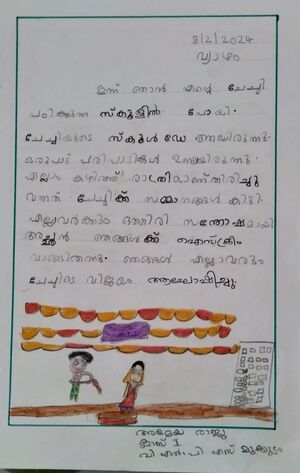 8/2/2024
വ്യാഴം
ഇന്ന് ഞാൻ എന്റെ ചേച്ചി
പഠിക്കുന്ന സ്കൂളിൽ പോയി.
ചേച്ചിയുടെ സ്കൂൾ ഡേ ആയിരുന്നു.
ഒരുപാട് പരിപാടികൾ ഉണ്ടായിരുന്നു.
എല്ലാം കഴിഞ്ഞ് രാത്രിയാണ് തിരിച്ചു
വന്നത്. ചേച്ചിക്ക് സമ്മാനങ്ങൾ കിട്ടി.
എല്ലാവർക്കും ഒത്തിരി സന്തോഷമായി
അച്ഛൻ ഞങ്ങൾക്ക് ഐസ്ക്രീം
വാങ്ങിതന്നു. ഞങ്ങൾ എല്ലാവരും
ചേച്ചിടെ വിജയം ആഘോഷിച്ചു.
അമേയ രാജു
ക്ലാസ് I
വി എൽ പി എസ് മുക്കുടം